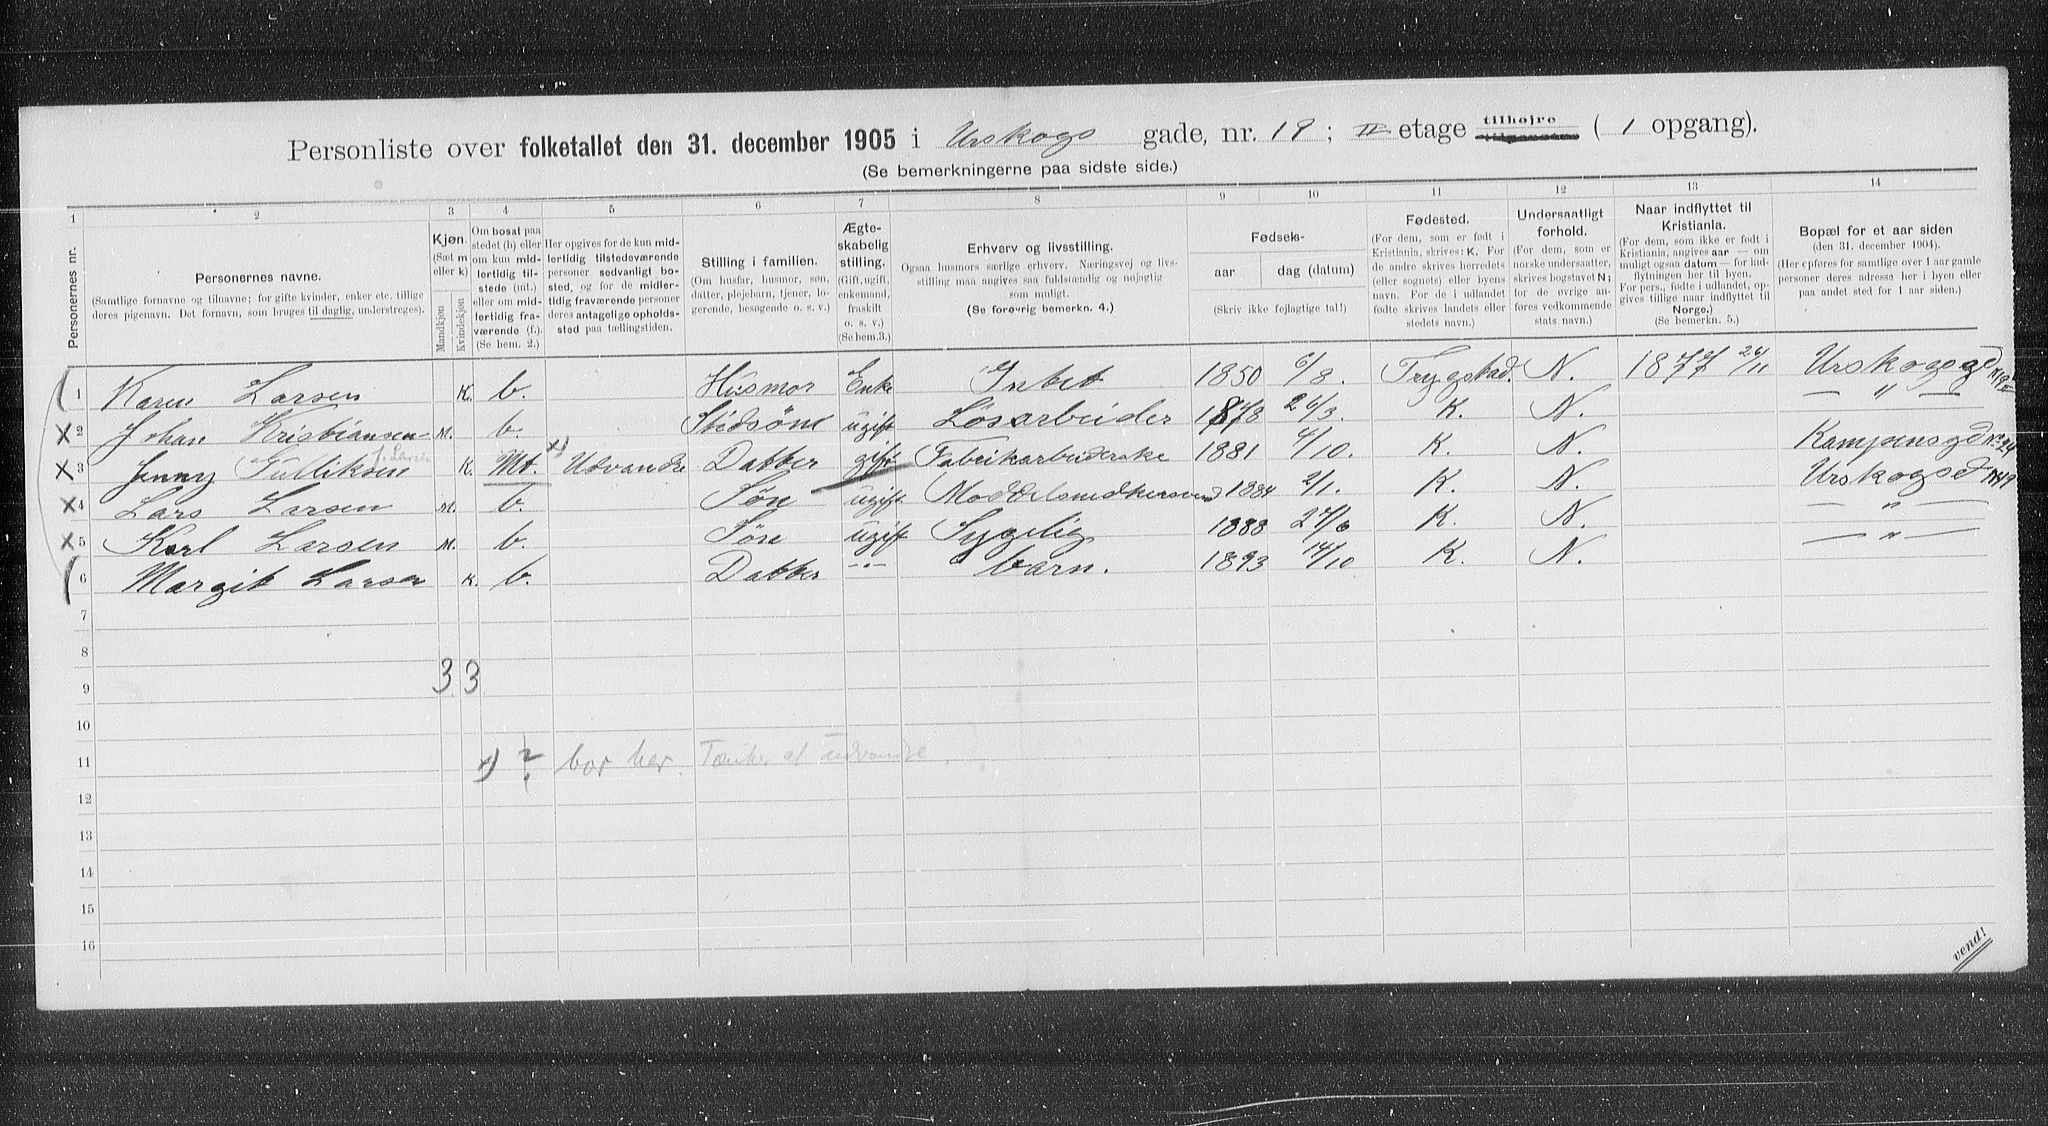 Personliste over folketallet den 31. december 1905 i Urskogs gade, nr. 19; II etage tilhøjre (1 opgang).
(Se bemerkningerne paa sidste side.)
1 2 3 4 5 6 7 8 9 10 11 12 13 14
Personernes nr.
Personernes navne.
(Samtlige fornavne og tilnavne; for gifte kvinder, enker etc. tillige deres pigenavn. Det fornavn, som bruges til daglig, understreges).
Kjøn.
(Sæt m eller k)
Mandkjøn
Kvindekjøn
Om bosat paa stedet (b) eller om kun midlertidig tilstede (mt.) eller om midlertidig fraværende (f.). (Se bem. 2.)
Her opgives for de kun midlertidig tilstedeværende personer sedvanligt bosted, og for de midlertidig fraværende personer deres antagelige opholdssted paa tællingstiden.
Stilling i familien.
(Om husfar, husmor, søn, datter, plejebarn, tjener, logerende, besøgende o. s. v.)
Ægteskabelig stilling.
(Gift, ugift, enkemand, fraskilt o. s. v.)
(Se bem. 3.)
Erhverv og livsstilling.
Ogsaa husmors særlige erhverv. Næringsvej og livsstilling maa angives saa fuldstændig og nøjagtig som muligt.
(Se forøvrig bemerkn. 4.)
Fødsels-
aar
dag (datum)
(Skriv ikke fejlagtige tal!)
Fødested.
(For dem, som er født i Kristiania, skrives: K. For de andre skrives herredets (eller sognets) eller byens navn. For de i udlandet fødte skrives landets eller stedets navn.)
Undersaatligt forhold.
(For dem, som er norske undersaatter, skrives bogstavet N; for de øvrige anføres vedkommende stats navn.)
Naar indflyttet til Kristiania.
(For dem, som ikke er født i Kristiania, angives aar — om muligt ogsaa datum — for indflytningen her til byen. For pers., fødte i udlandet, opgives tillige naar indflyttet til Norge.)
(Se bemerkn. 5.)
Bopæl for et aar siden
(den 31. december 1904).
(Her opføres for samtlige over 1 aar gamle personer deres adresse her i byen eller paa andet sted for 1 aar siden.)
1 Karen Larsen K. b. Husmor Enke Intet 1850 6/8. Trygstad. N. 1877 24/11 Urskogsgd No 19 II
x 2 Johan Kristiansen M. b. Stedsøn ugift Løsarbeider 1878 26/3. K. N. — " —
x 3 Jenny Gulliksen f. Larsen K. Mt. x) Udvandre Datter gift Fabrikarbeiderske 1881 4/10. K. N. Kampensgd No 24
x 4 Lars Larsen M. b. Søn ugift Møddelsnedkersvend 1884 2/1. K. N. Urskogsgd No 19
x 5 Karl Larsen M. b. Søn ugift Sygelig 1888 27/6 K. N. — " —
6 Margit Larsen K. b. Datter -"- barn. 1893 14/10 K. N. — " —
7
8
3 3
9
10
11 x) ? bor her. Tænker at udvandre.
12
13
14
15
16
vend!